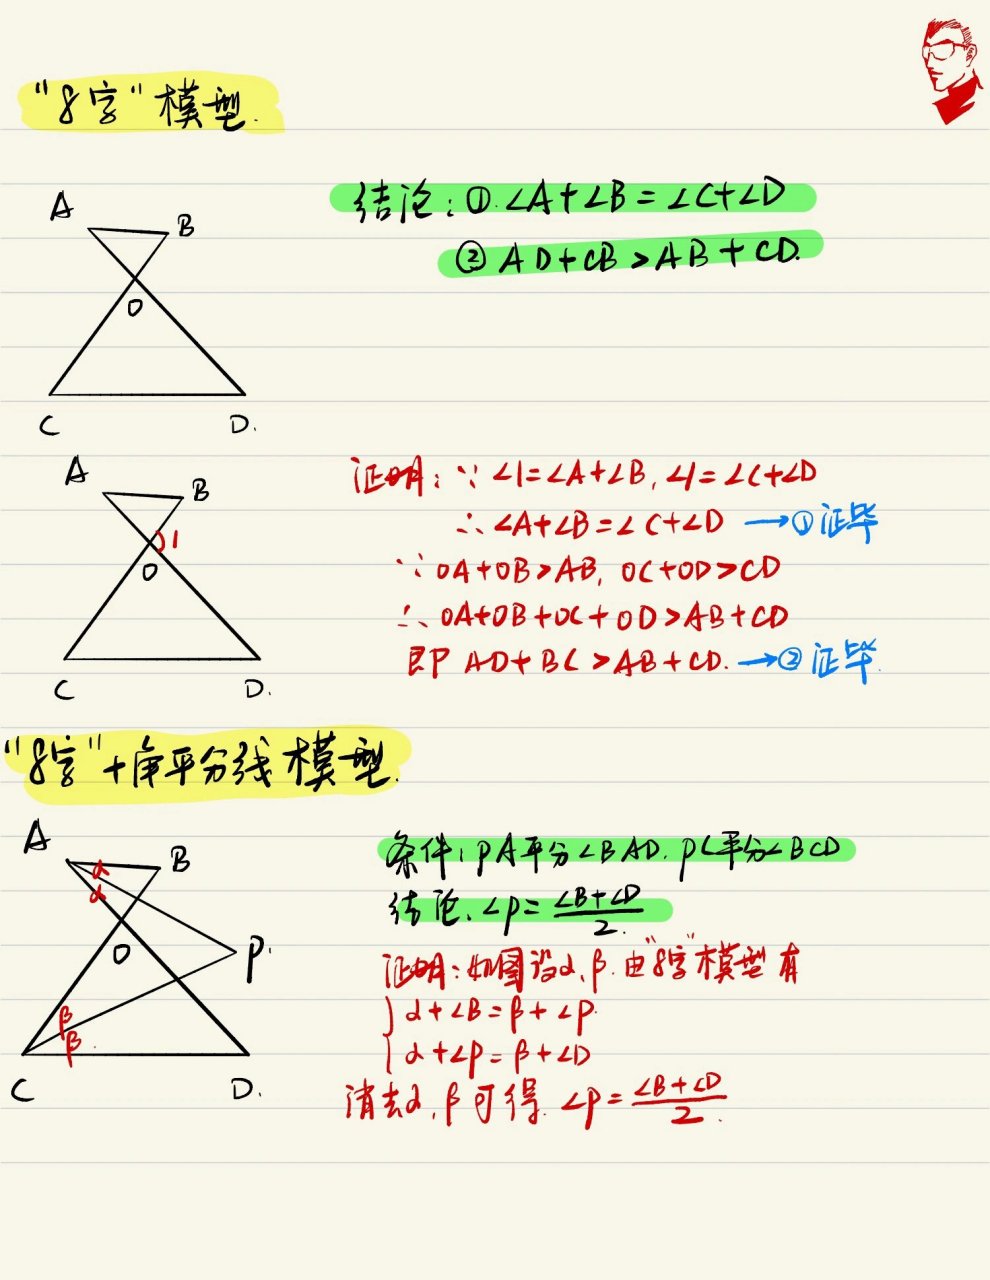 “8字”模型.
结论:①.∠A+∠B=∠C+∠D
②AD+CB>AB+CD.
A
B
O
C
D.
A
B
1
O
C
D.
证明:∵∠1=∠A+∠B,∠1=∠C+∠D
∴∠A+∠B=∠C+∠D →①证毕
∵OA+OB>AB,OC+OD>CD
∴OA+OB+OC+OD>AB+CD
即AD+BC>AB+CD.→②证毕.
“8字”+角平分线模型.
A
B
α
α
O
P.
β
β
C
D.
条件:PA平分∠BAD.PC平分∠BCD
结论.∠P=(∠B+∠D)/2.
证明:如图设α,β.由“8字”模型有
{α+∠B=β+∠P.
α+∠P=β+∠D
消去α,β可得.∠P=(∠B+∠D)/2.